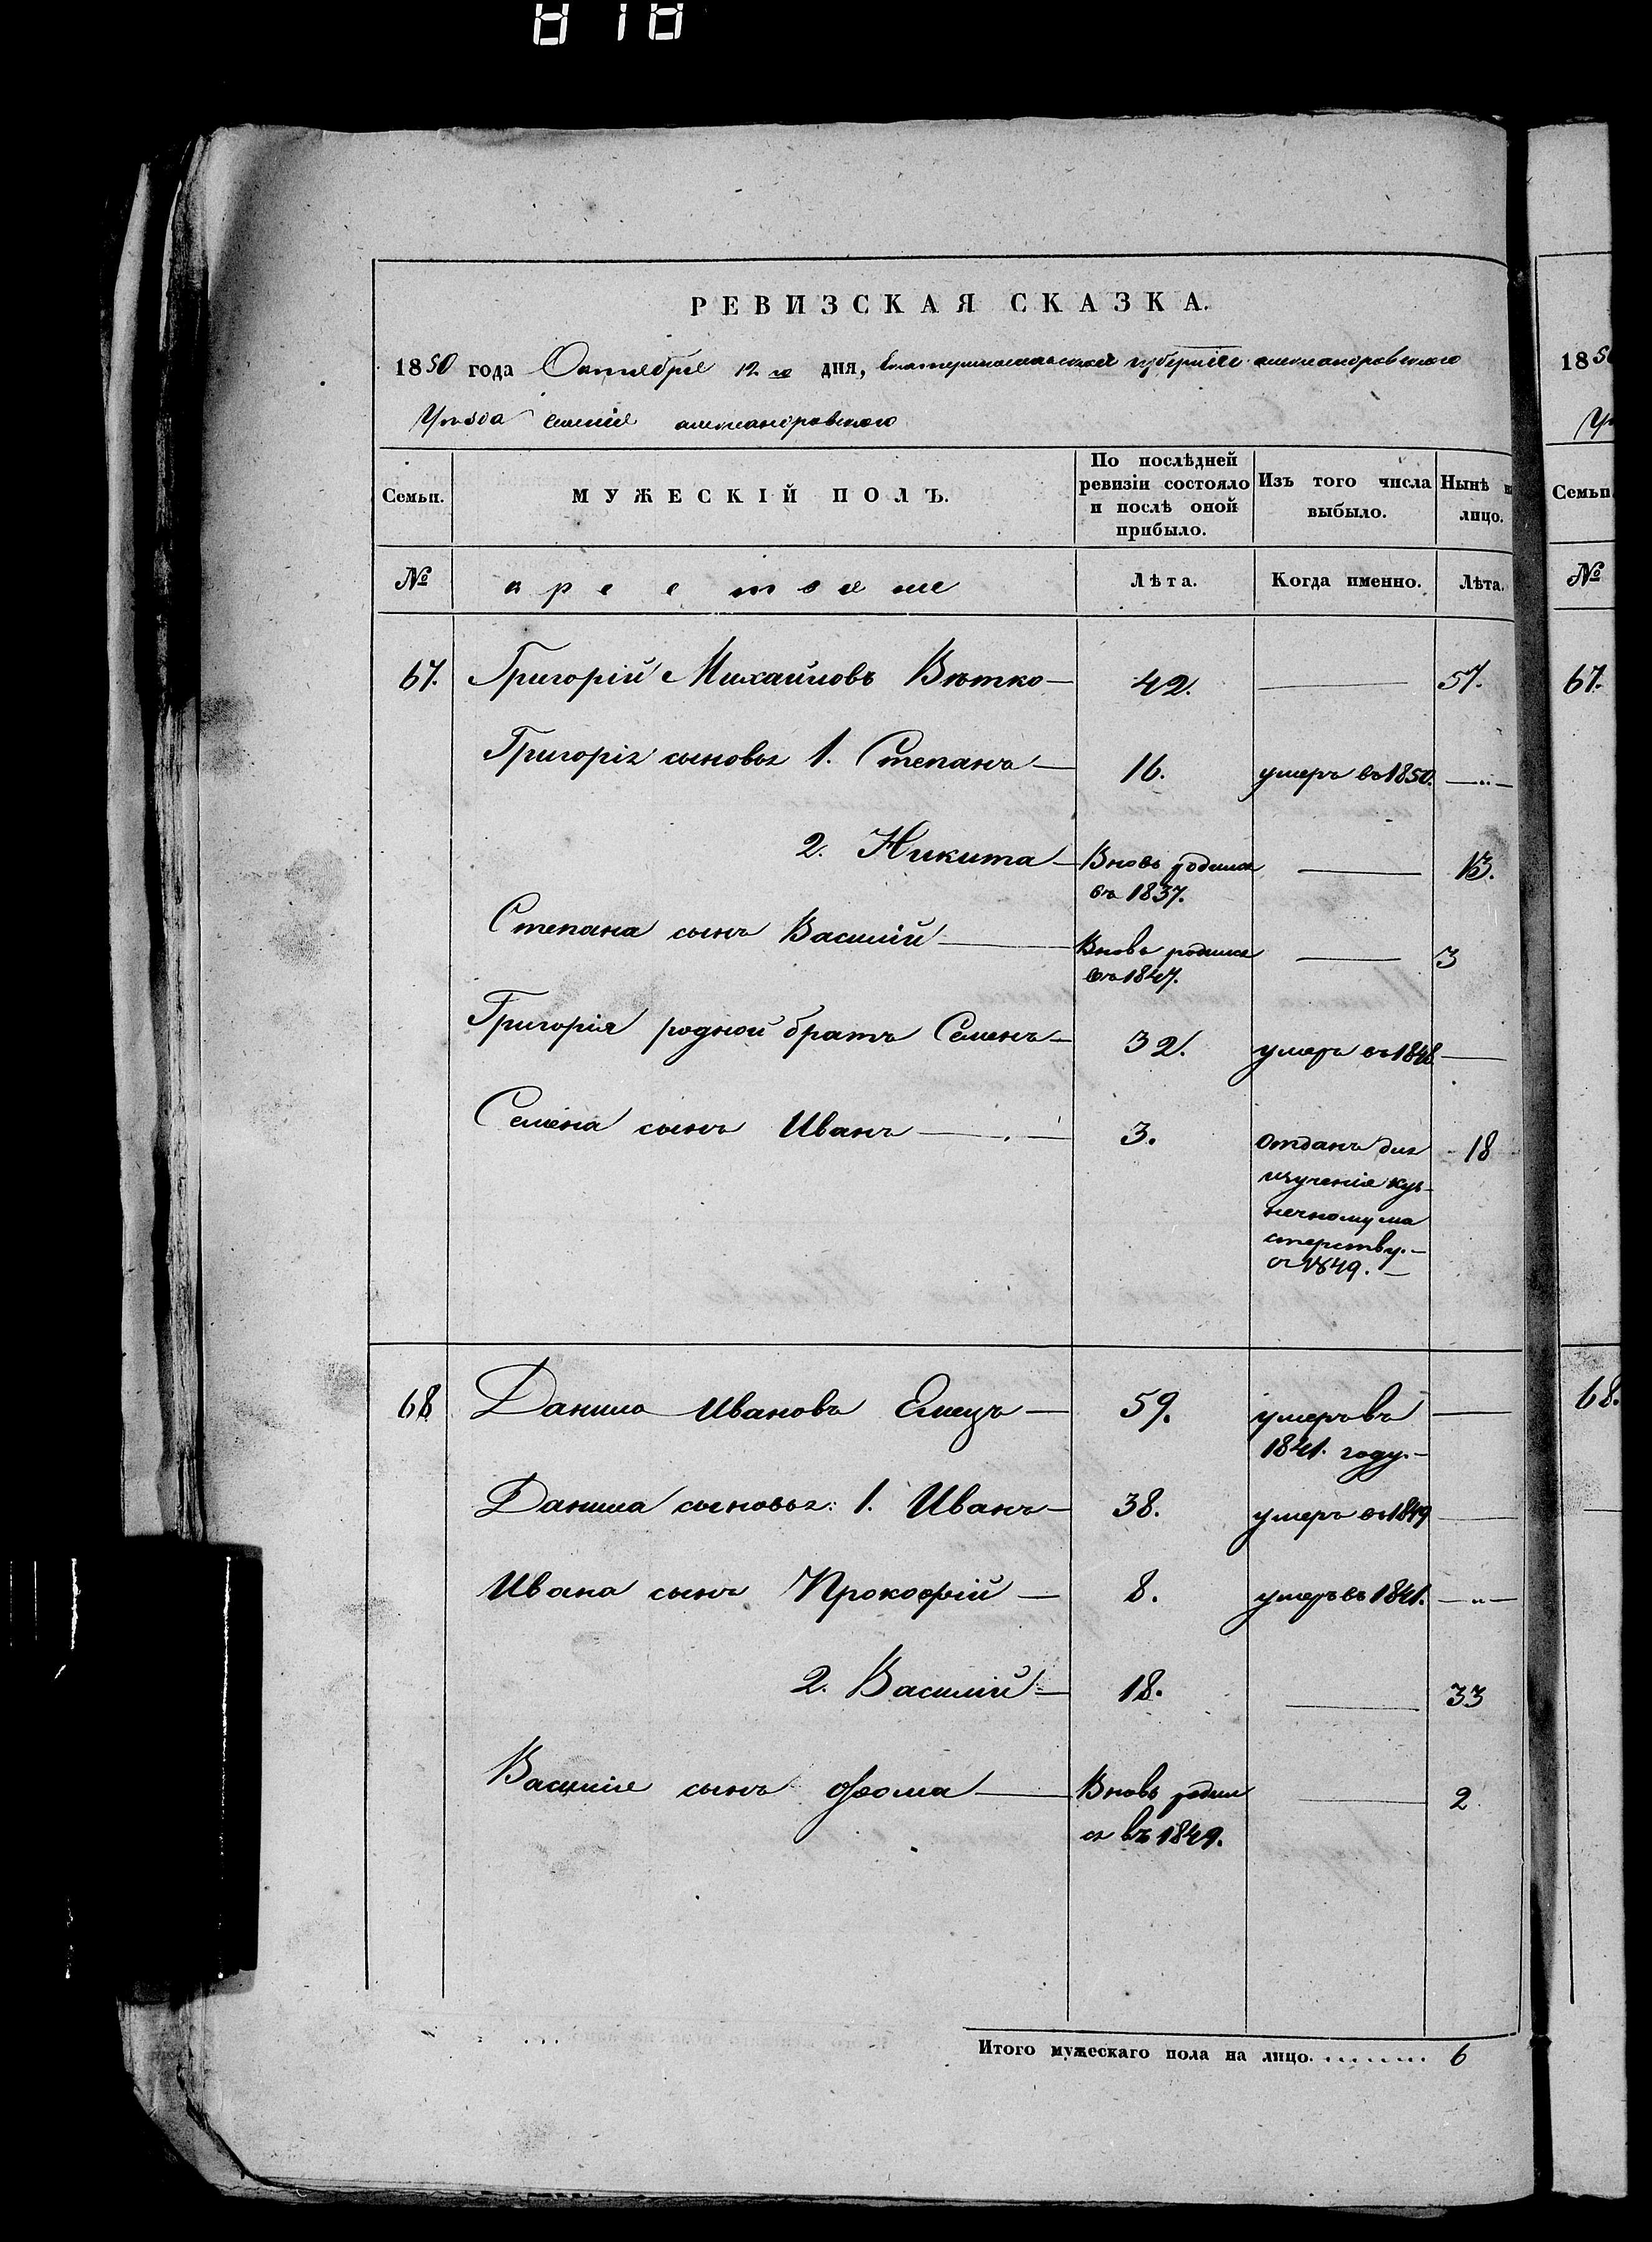 818
РЕВИЗСКАЯ СКАЗКА.
1850 года Октября 12 го дня, Екатеринославской губерніи александровского
Уѣзда селенія александровского
Семьи. МУЖЕСКІЙ ПОЛЪ. По послѣдней ревизіи состояло и послѣ оной прибыло. Изъ того числа выбыло. Нынѣ н лицо.
№ крестьяне Лѣта. Когда именно. Лѣта.
67. Григорій Михайловъ Вѣтко — 42. — 57.
Григорія сыновья 1. Степанъ — 16. умеръ въ 1850. — „ —
2. Никита — Вновь родился въ 1837. — 13.
Степана сынъ Василій — Вновь родился въ 1847. — 3
Григорія родной братъ Семенъ — 32. умеръ въ 1848 —
Семена сынъ Иванъ — 3. отданъ для 18
изученія куз-
нечному ма
стерству. —
съ 1849. —
68 Данило Ивановъ Емецъ — 59. умеръ въ —
1841. году. —
Данила сыновья: 1. Иванъ — 38. умеръ въ 1849 —
Ивана сынъ Прокофій — 8. умеръ въ 1841. — „ —
2. Василій — 18. — 33
Василія сынъ Фома — Вновь родил — 2
ся въ 1849.
Итого мужескаго пола на лицо. . . . . . . . . 6
1850
Семьи
№
67.
68.